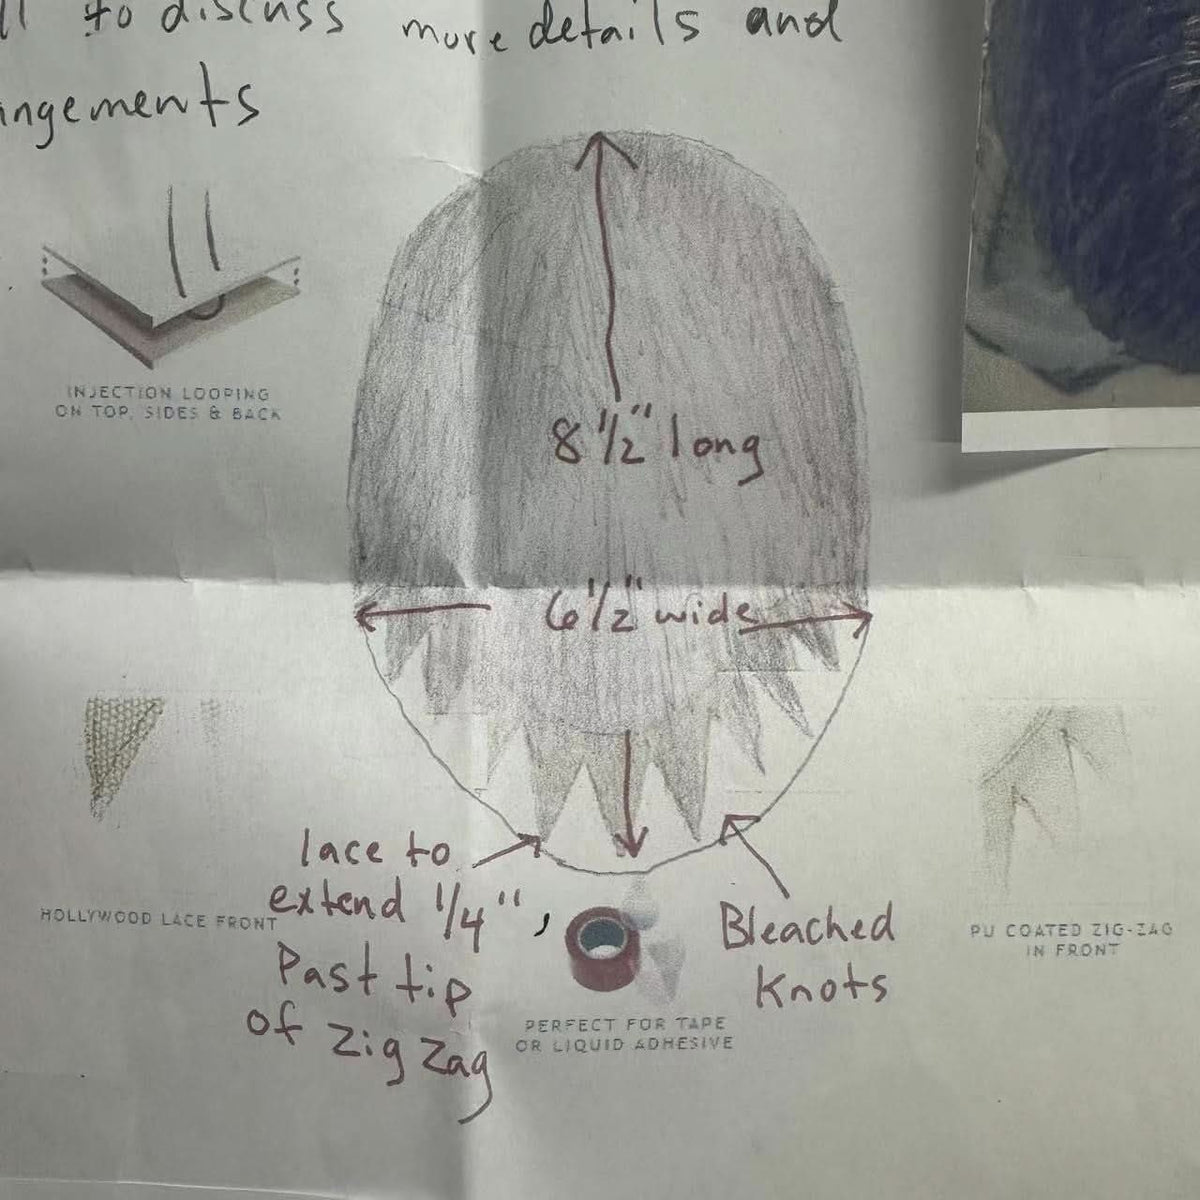 to discuss more details and
INJECTION LOOPING
ON TOP, SIDES & BACK
8 1/2" long
6 1/2" wide
lace to
extend 1/4",
Past tip
of Zig Zag
Bleached
Knots
HOLLYWOOD LACE FRONT
PU COATED ZIG-ZAG
IN FRONT
PERFECT FOR TAPE
OR LIQUID ADHESIVE